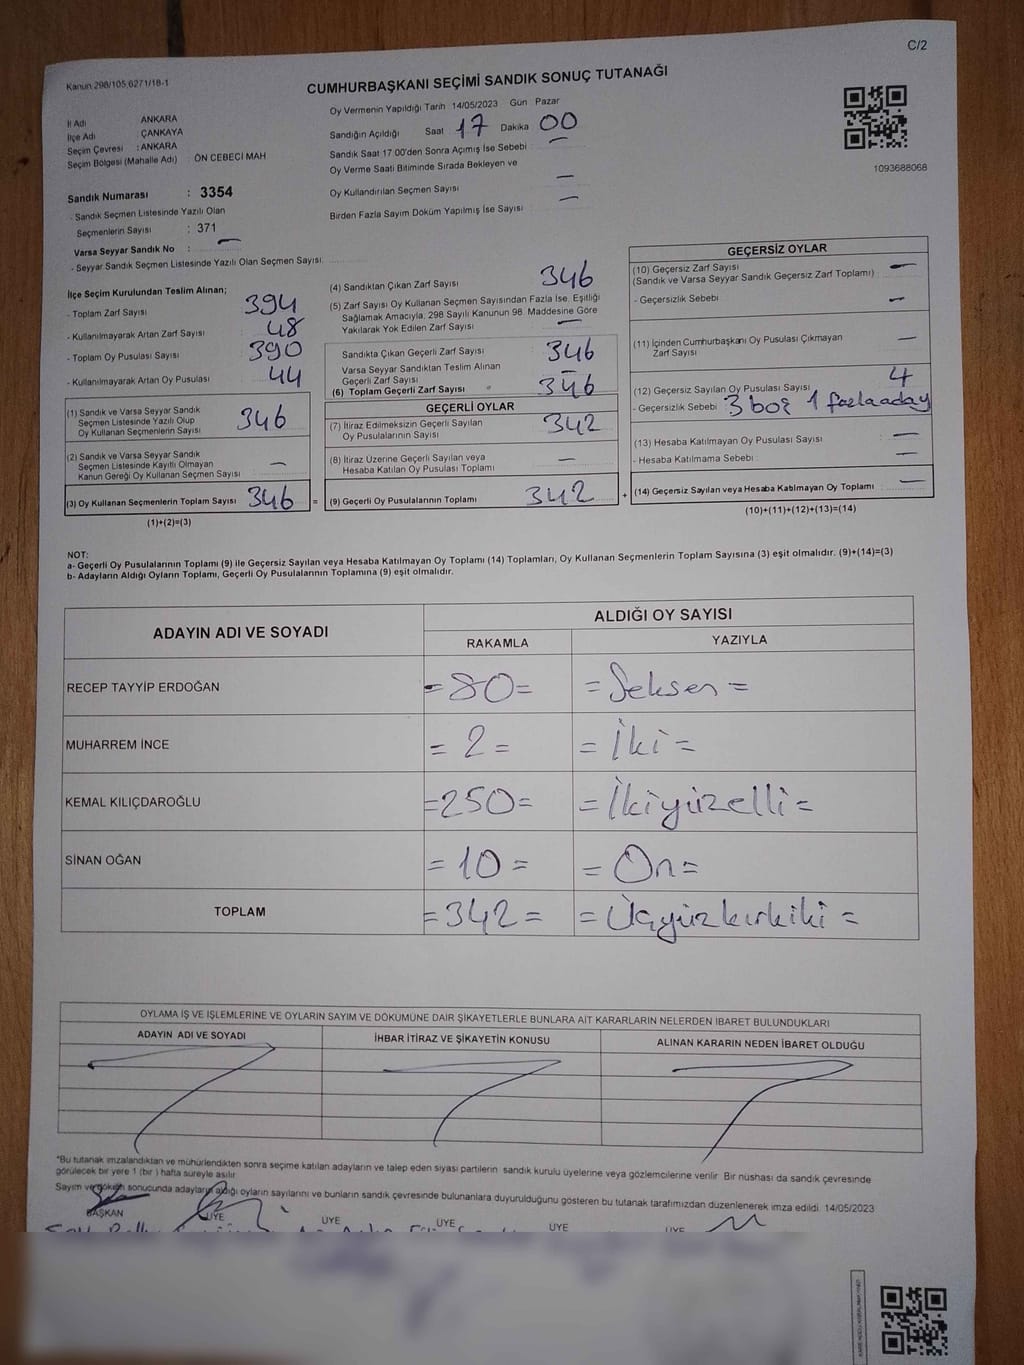 C/2
Kanun 298/105,6271/18-1
CUMHURBAŞKANI SEÇİMİ SANDIK SONUÇ TUTANAĞI
İl Adı ANKARA
İlçe Adı : ÇANKAYA
Seçim Çevresi : ANKARA
Seçim Bölgesi (Mahalle Adı) ÖN CEBECİ MAH
Oy Vermenin Yapıldığı Tarih 14/05/2023 Gün Pazar
Sandığın Açıldığı Saat 17 Dakika 00
Sandık Saat 17 00'den Sonra Açılmış İse Sebebi : —
Oy Verme Saati Bitiminde Sırada Bekleyen ve
Oy Kullandırılan Seçmen Sayısı —
Birden Fazla Sayım Döküm Yapılmış İse Sayısı —
1093688068
Sandık Numarası : 3354
- Sandık Seçmen Listesinde Yazılı Olan
Seçmenlerin Sayısı : 371
Varsa Seyyar Sandık No : —
- Seyyar Sandık Seçmen Listesinde Yazılı Olan Seçmen Sayısı:
İlçe Seçim Kurulundan Teslim Alınan;
- Toplam Zarf Sayısı 394
- Kullanılmayarak Artan Zarf Sayısı 48
- Toplam Oy Pusulası Sayısı 390
- Kullanılmayarak Artan Oy Pusulası 44
(1) Sandık ve Varsa Seyyar Sandık
Seçmen Listesinde Yazılı Olup
Oy Kullanan Seçmenlerin Sayısı 346
(2) Sandık ve Varsa Seyyar Sandık
Seçmen Listesinde Kayıtlı Olmayan
Kanun Gereği Oy Kullanan Seçmen Sayısı —
(3) Oy Kullanan Seçmenlerin Toplam Sayısı 346 =
(1)+(2)=(3)
(4) Sandıktan Çıkan Zarf Sayısı 346
(5) Zarf Sayısı Oy Kullanan Seçmen Sayısından Fazla İse, Eşitliği
Sağlamak Amacıyla, 298 Sayılı Kanunun 98. Maddesine Göre
Yakılarak Yok Edilen Zarf Sayısı —
Sandıkta Çıkan Geçerli Zarf Sayısı 346
Varsa Seyyar Sandıktan Teslim Alınan
Geçerli Zarf Sayısı —
(6) Toplam Geçerli Zarf Sayısı 346
GEÇERLİ OYLAR
(7) İtiraz Edilmeksizin Geçerli Sayılan
Oy Pusulalarının Sayısı 342
(8) İtiraz Üzerine Geçerli Sayılan veya
Hesaba Katılan Oy Pusulası Toplamı —
(9) Geçerli Oy Pusulalarının Toplamı 342 +
GEÇERSİZ OYLAR
(10) Geçersiz Zarf Sayısı —
(Sandık ve Varsa Seyyar Sandık Geçersiz Zarf Toplamı)
- Geçersizlik Sebebi —
(11) İçinden Cumhurbaşkanı Oy Pusulası Çıkmayan
Zarf Sayısı —
(12) Geçersiz Sayılan Oy Pusulası Sayısı 4
- Geçersizlik Sebebi 3 boş 1 fazla aday
(13) Hesaba Katılmayan Oy Pusulası Sayısı —
- Hesaba Katılmama Sebebi : —
(14) Geçersiz Sayılan veya Hesaba Katılmayan Oy Toplamı : —
(10)+(11)+(12)+(13)=(14)
NOT:
a- Geçerli Oy Pusulalarının Toplamı (9) ile Geçersiz Sayılan veya Hesaba Katılmayan Oy Toplamı (14) Toplamları, Oy Kullanan Seçmenlerin Toplam Sayısına (3) eşit olmalıdır. (9)+(14)=(3)
b- Adayların Aldığı Oyların Toplamı, Geçerli Oy Pusulalarının Toplamına (9) eşit olmalıdır.
ADAYIN ADI VE SOYADI ALDIĞI OY SAYISI
RAKAMLA YAZIYLA
RECEP TAYYİP ERDOĞAN =80= =Seksen=
MUHARREM İNCE =2= =İki=
KEMAL KILIÇDAROĞLU =250= =İkiyüzelli=
SİNAN OĞAN =10= =On=
TOPLAM =342= =Üçyüzkırkiki=
OYLAMA İŞ VE İŞLEMLERİNE VE OYLARIN SAYIM VE DÖKÜMÜNE DAİR ŞİKAYETLERLE BUNLARA AİT KARARLARIN NELERDEN İBARET BULUNDUKLARI
ADAYIN ADI VE SOYADI İHBAR İTİRAZ VE ŞİKAYETİN KONUSU ALINAN KARARIN NEDEN İBARET OLDUĞU
*Bu tutanak imzalandıktan ve mühürlendikten sonra seçime katılan adayların ve talep eden siyasi partilerin sandık kurulu üyelerine veya gözlemcilerine verilir Bir nüshası da sandık çevresinde
görülecek bir yere 1 (bir) hafta süreyle asılır
Sayım ve döküm sonucunda adayların aldığı oyların sayılarını ve bunların sandık çevresinde bulunanlara duyurulduğunu gösteren bu tutanak tarafımızdan düzenlenerek imza edildi. 14/05/2023
BAŞKAN ÜYE ÜYE ÜYE ÜYE ÜYE